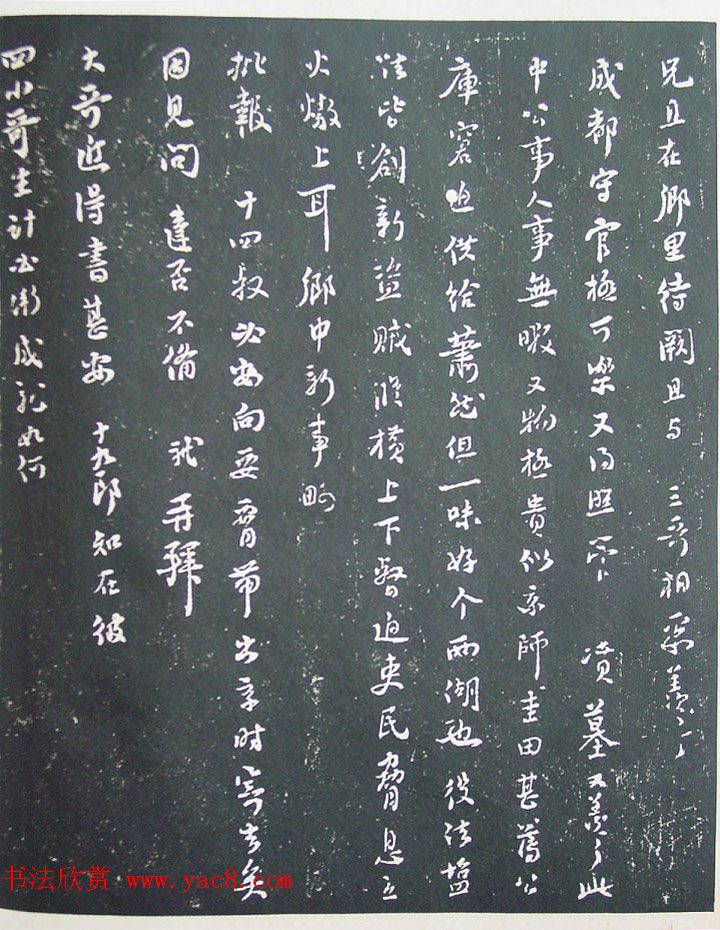 兄且在鄉里待闕且与 三哥相聚羨羨
成都守官極可樂又得照管 墳墓又羨羨此
中公事人事無暇又物極貴似京師圭田甚薄公
庫窘迫供給蕭然但一味好个西湖也役法塩
法皆創新盜賊縱橫上下督迫吏民脅息立
火燉上耳鄉中新事略
批報 十四叔必安向要 帶出京時寄去矣
因見問 達否不備 軾再拜
大哥近得書甚安 十九郎知在彼
四小哥生計必漸成就如何
书法欣赏 www.yac8.com